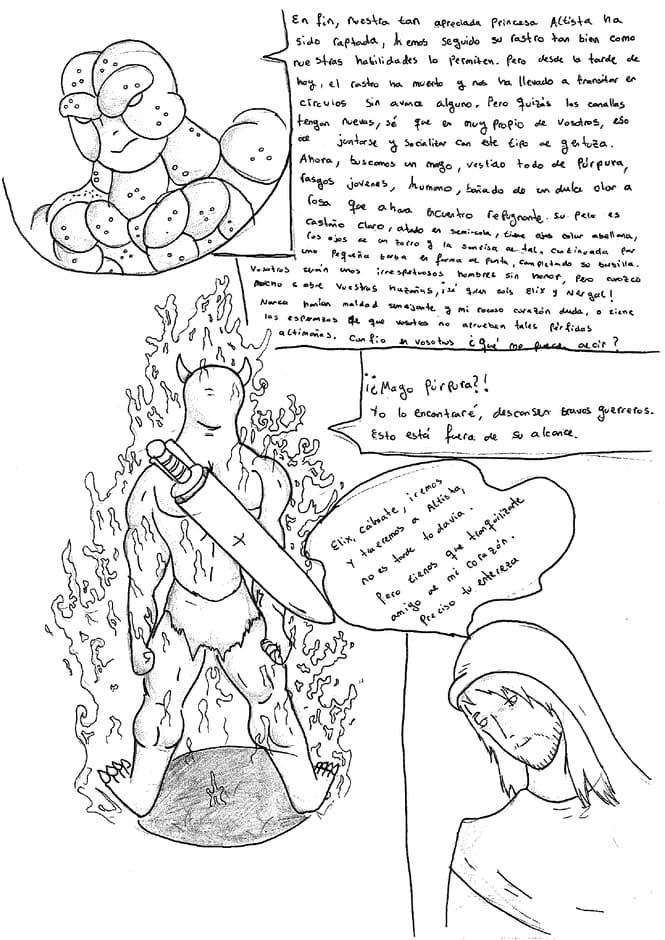 En fin, nuestra tan apreciada Princesa Altista ha
sido raptada, hemos seguido su rastro tan bien como
nuestras habilidades lo permiten. Pero desde la tarde de
hoy, el rastro ha muerto y nos ha llevado a transitar en
círculos sin avance alguno. Pero quizás los canallas
tengan nuevas, sé que es muy propio de vosotros, eso
de juntarse y socializar con este tipo de gentuza.
Ahora, buscamos un mago, vestido todo de Púrpura,
rasgos jovenes, humano, bañado de un dulce olor a
rosa que ahora encuentro repugnante. Su pelo es
castaño claro, atado en semicola, tiene ojos color avellana,
los ojos de un zorro y la sonrisa de tal, continuada por
una pequeña barba en forma de punta, completado su barbilla.
Vosotros serán unos irrespetuosos hombres sin honor, pero conozco
mucho sobre vuestras hazañas, ¡sé quien sois Elix y Nergal!
Nunca harían maldad semejante y mi rocoso corazón duda, o tiene
las esperanzas de que vosotros no aprueben tales pérfidos
Confío en vosotros ¿Qué me puede decir?
¡¿Mago Púrpura?!
Yo lo encontraré, descansen bravos guerreros.
Esto está fuera de su alcance.
Elix, cálmate, iremos
y traeremos a Altista,
no es tarde todavia.
Pero tienes que tranquilizarte
amigo de mi corazón.
Preciso tu entereza